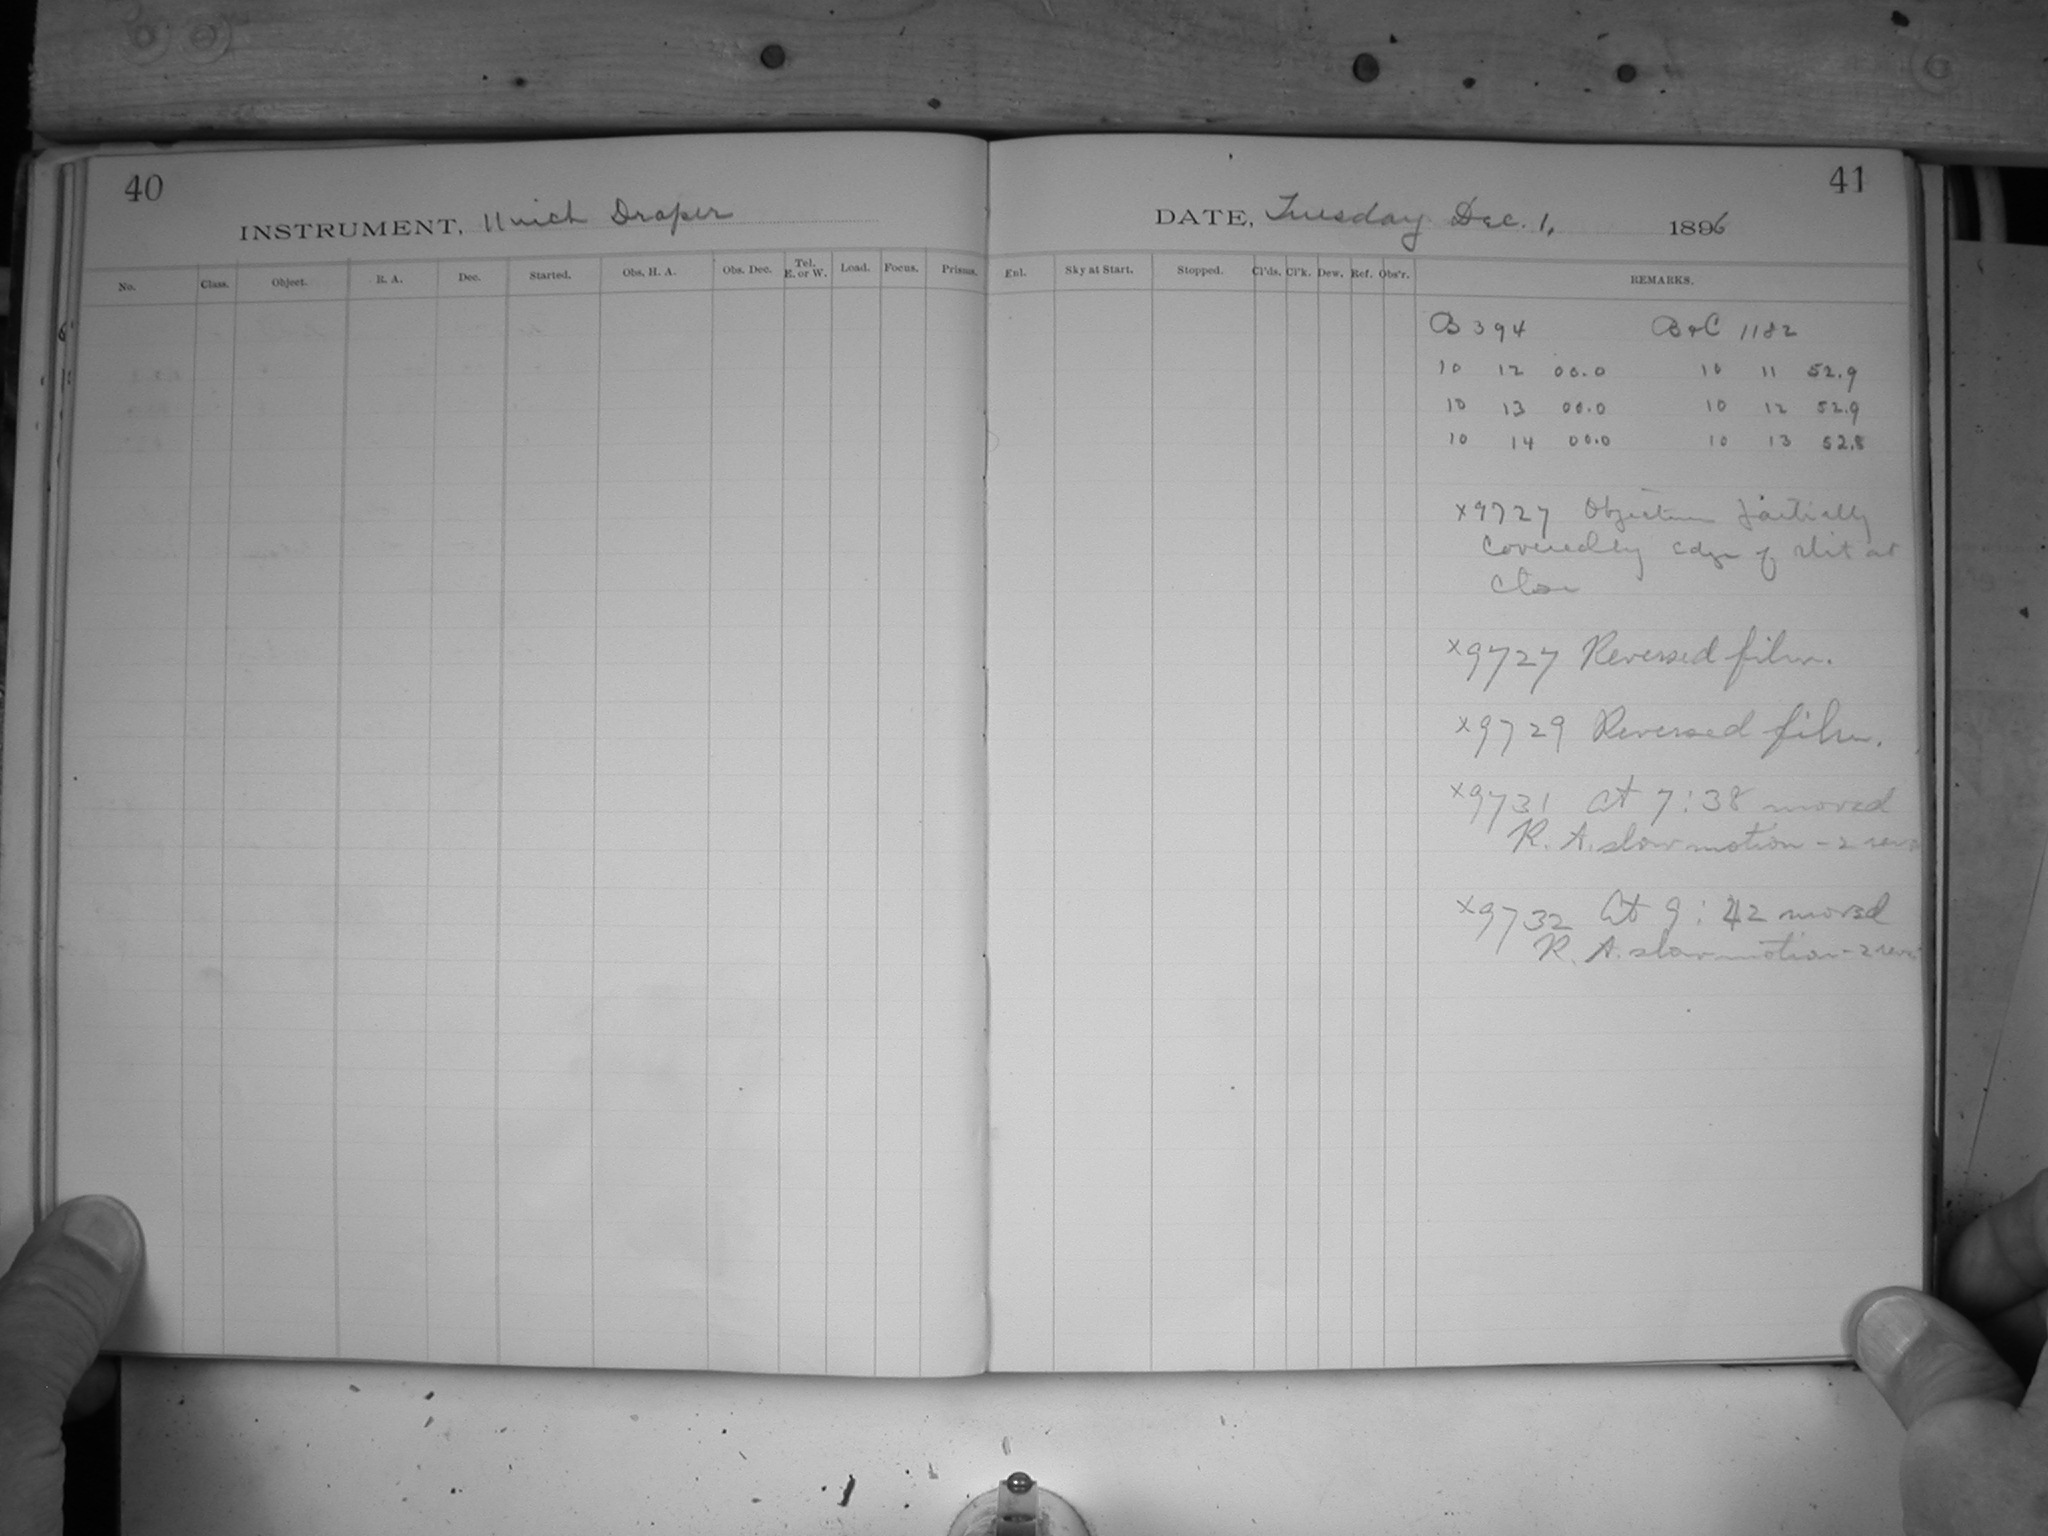 40
INSTRUMENT, 11 inch Draper
No. Class. Object. R. A. Dec. Started. Obs. H. A. Obs. Dec. Tel. E. or W. Load. Focus. Prisms.
41
DATE, Tuesday Dec. 1, 1896
Enl. Sky at Start. Stopped. Cl'ds. Cl'k. Dew. Ref. Obs'r. REMARKS.
B 394 B&C 1182
10 12 00.0 10 11 52.9
10 13 00.0 10 12 52.9
10 14 00.0 10 13 52.8
x9727 Objective partially
covered by edge of slit at
close
x9727 Reversed film.
x9729 Reversed film.
x9731 At 7:38 moved
R. A. slow motion - 2 revs
x9732 At 9:42 moved
R. A. slow motion - 2 revs